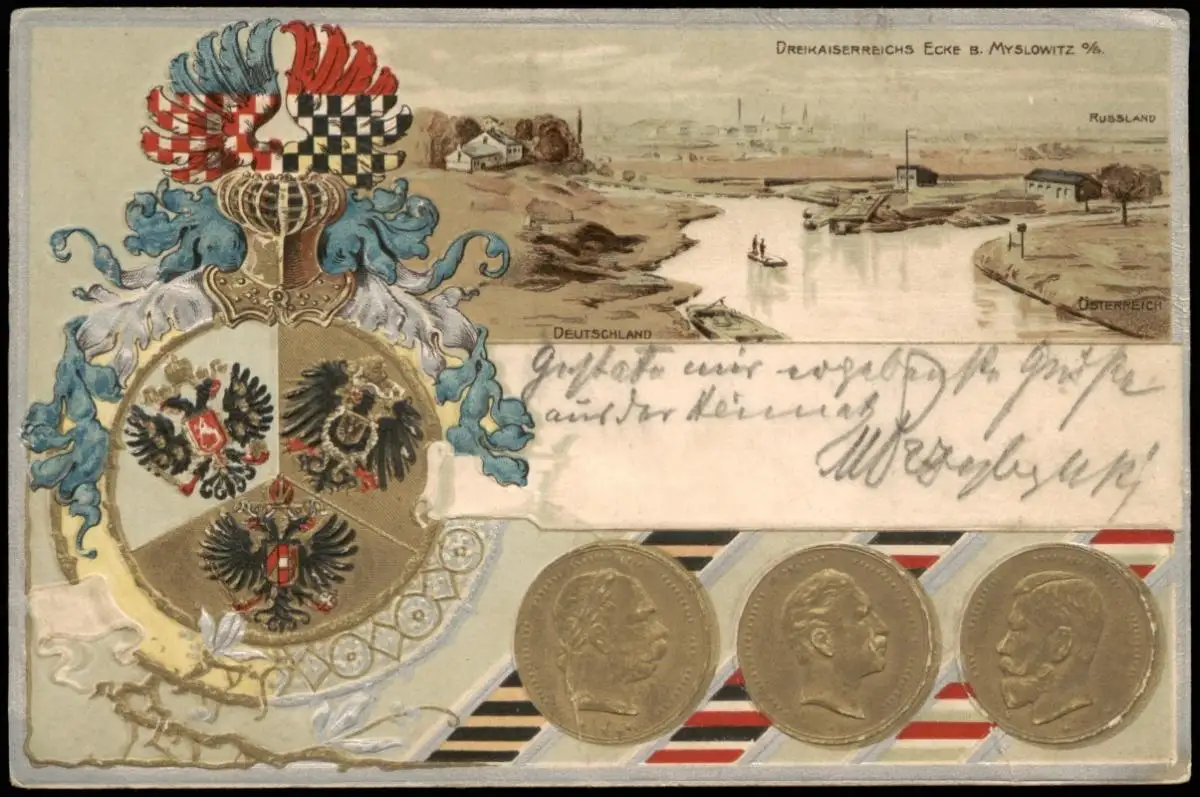 DREIKAISERREICHS ECKE B. MYSLOWITZ O/S.
RUSSLAND
ÖSTERREICH
DEUTSCHLAND
Gestatte mir ergebenste Grüße
aus der Heimat